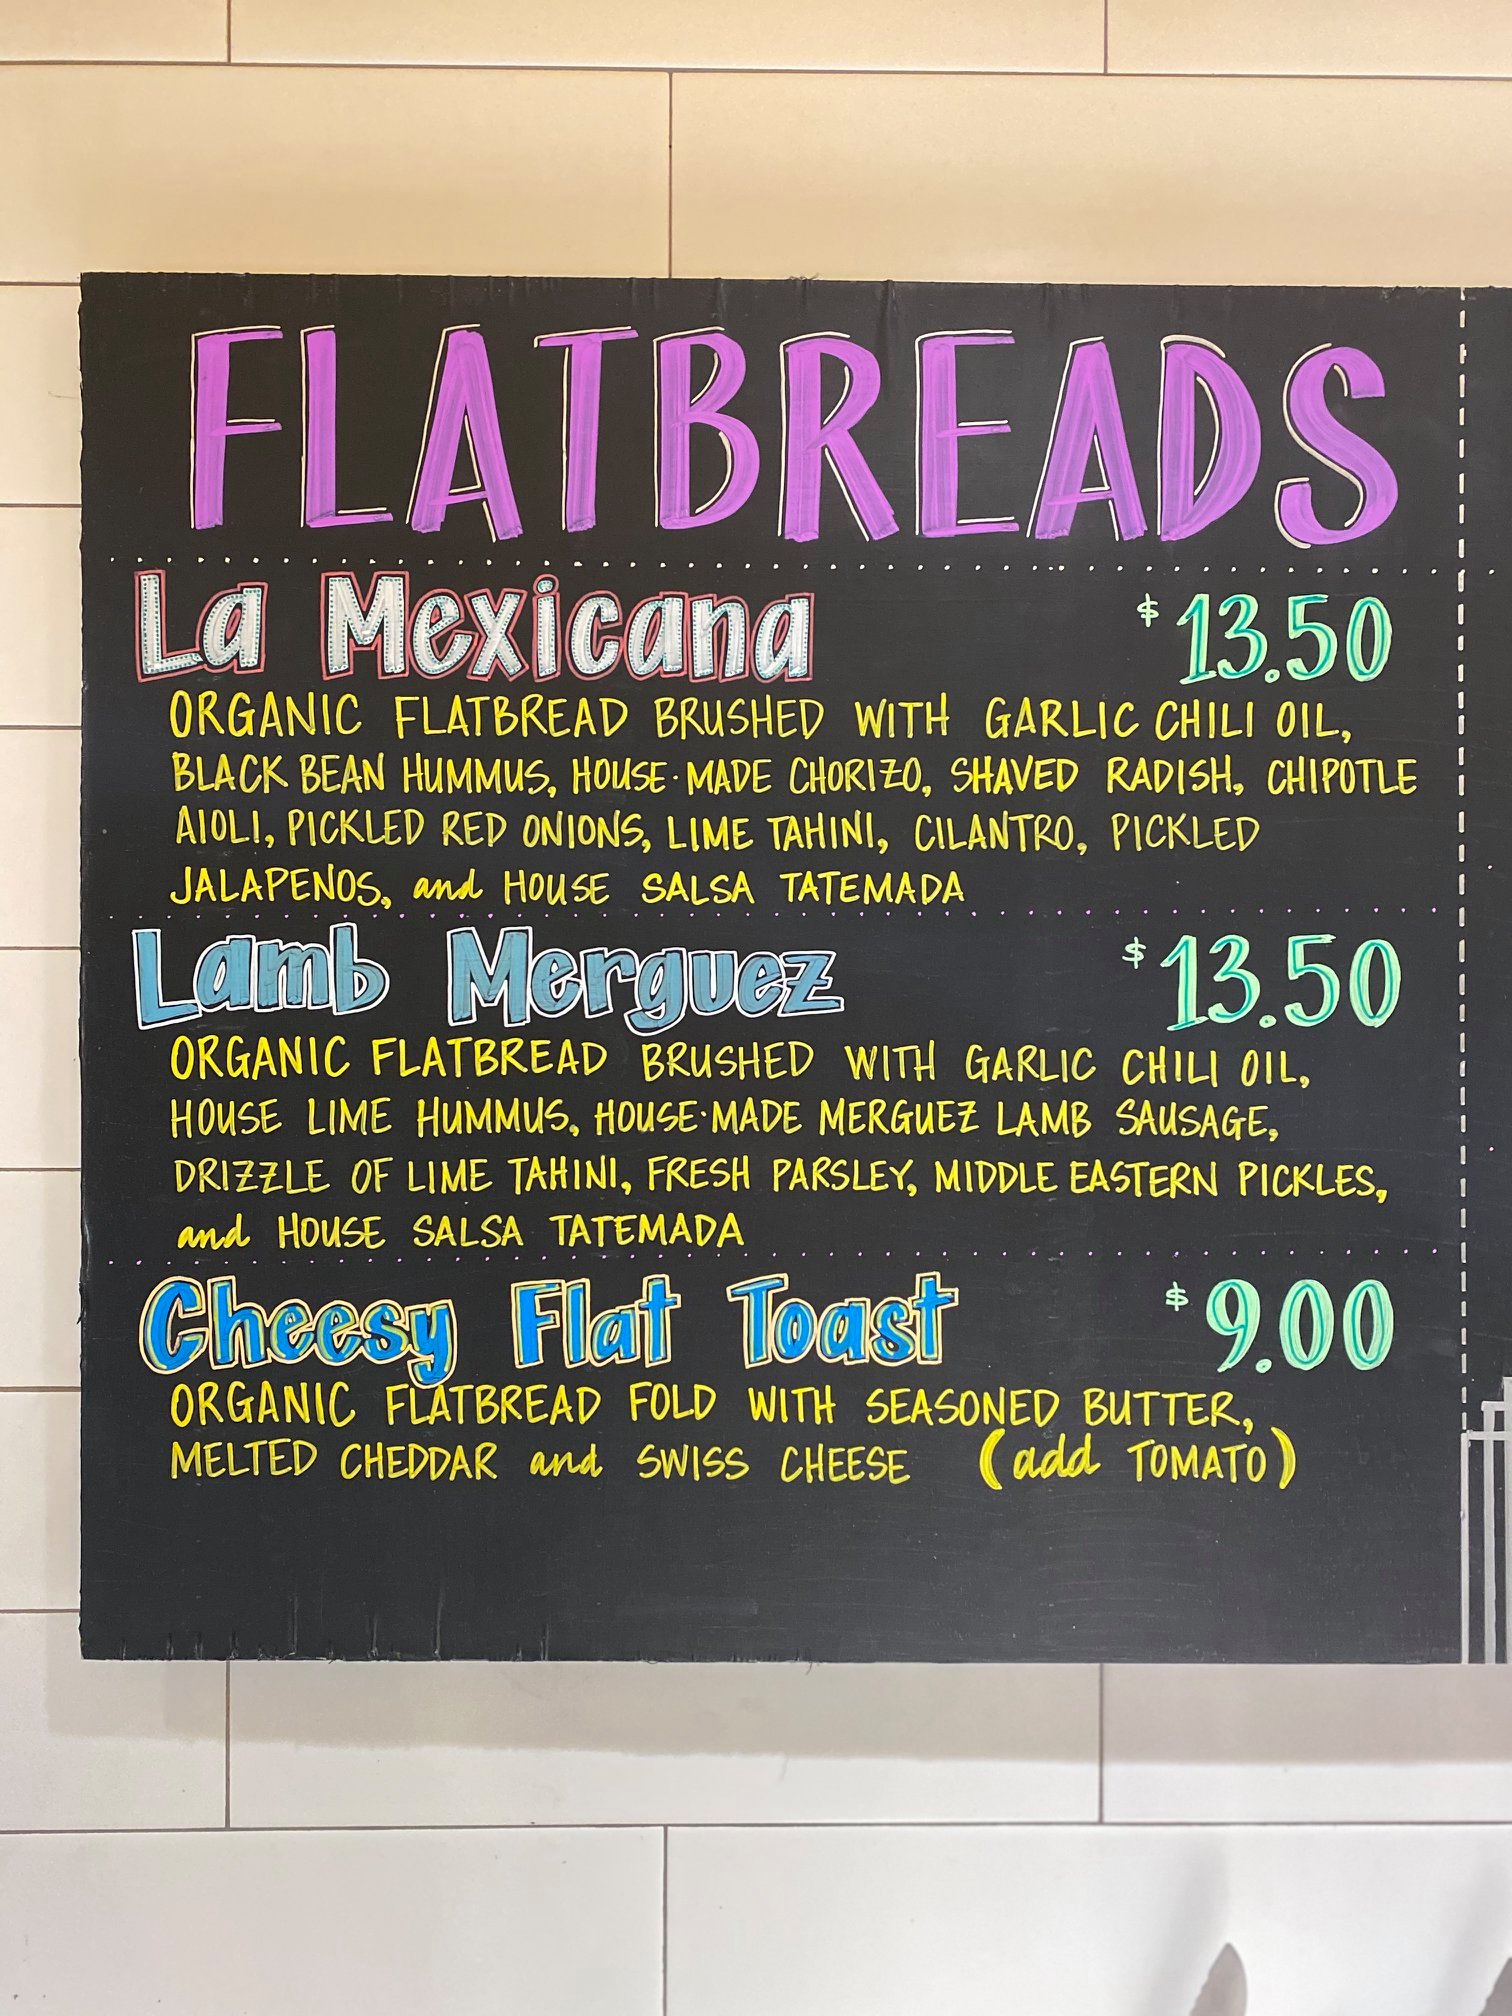 FLATBREADS
La Mexicana $13.50
ORGANIC FLATBREAD BRUSHED WITH GARLIC CHILI OIL,
BLACK BEAN HUMMUS, HOUSE·MADE CHORIZO, SHAVED RADISH, CHIPOTLE
AIOLI, PICKLED RED ONIONS, LIME TAHINI, CILANTRO, PICKLED
JALAPENOS, and HOUSE SALSA TATEMADA
Lamb Merguez $13.50
ORGANIC FLATBREAD BRUSHED WITH GARLIC CHILI OIL,
HOUSE LIME HUMMUS, HOUSE·MADE MERGUEZ LAMB SAUSAGE,
DRIZZLE OF LIME TAHINI, FRESH PARSLEY, MIDDLE EASTERN PICKLES,
and HOUSE SALSA TATEMADA
Cheesy Flat Toast $9.00
ORGANIC FLATBREAD FOLD WITH SEASONED BUTTER,
MELTED CHEDDAR and SWISS CHEESE (add TOMATO)